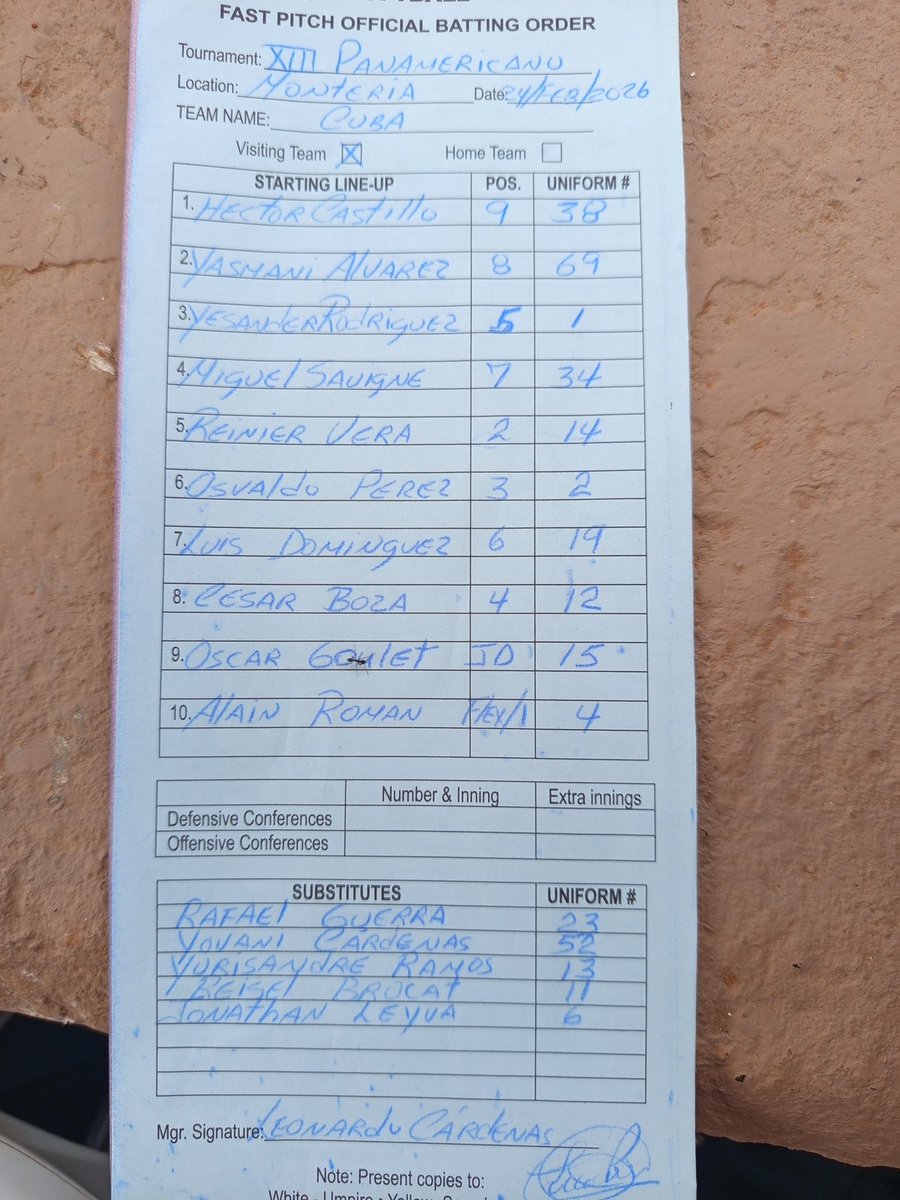 FAST PITCH OFFICIAL BATTING ORDER
Tournament: XIII PANAMERICANO
Location: MONTERIA Date: 24/FEB/2026
TEAM NAME: CUBA
Visiting Team X Home Team
STARTING LINE-UP POS. UNIFORM #
1. HECTOR CASTILLO 9 38
2. YASMANI ALVAREZ 8 69
3. YESANDER RODRIGUEZ 5 1
4. MIGUEL SAVIGNE 7 34
5. REINIER VERA 2 14
6. OSVALDO PEREZ 3 2
7. LUIS DOMINGUEZ 6 19
8. CESAR BOZA 4 12
9. OSCAR GOULET JD 15
10. ALAIN ROMAN FLEX/1 4
Number & Inning Extra innings
Defensive Conferences
Offensive Conferences
SUBSTITUTES UNIFORM #
RAFAEL GUERRA 23
YOVANI CARDENAS 52
YURISANDRE RAMOS 13
REISEL BROCAT 11
JONATHAN LEYVA 6
Mgr. Signature: LEONARDO CARDENAS
Note: Present copies to:
White - Umpire • Yellow